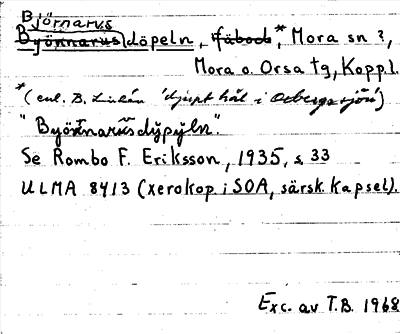 Björnarvs
Byönnarus|döpeln, fäbod,* Mora sn?,
Mora o. Orsa tg, Kopp.l.
*(enl. B. Lindén 'djupt hål i Orebergasjön')
"Byönnarusdypyln".
Se Rombo F. Eriksson, 1935, s. 33
ULMA 8413 (xerokop. i SOA, särsk. kapsel).
Exc. av T.B. 1968